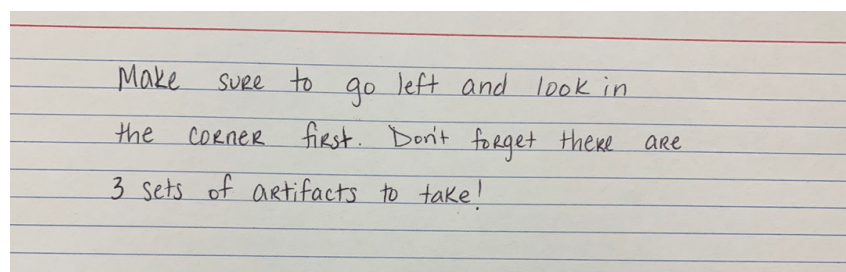 Make sure to go left and look in
the corner first. Don't forget there are
3 sets of artifacts to take!